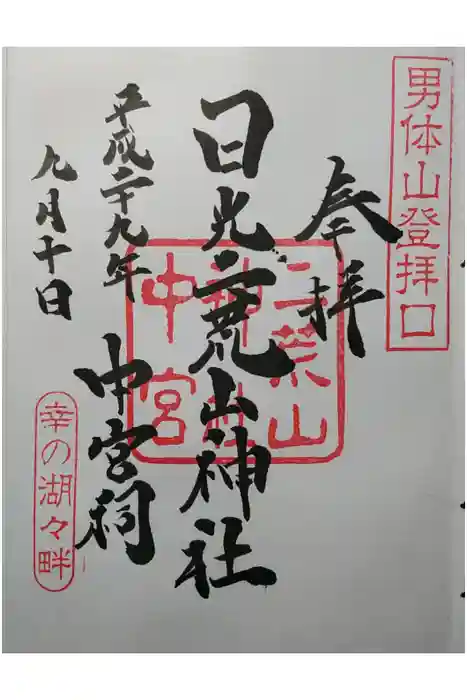 男体山登拝口
奉拝
日光二荒山神社
中宮祠
平成二十九年
九月十日
二荒山
神社
中宮
幸の湖々畔